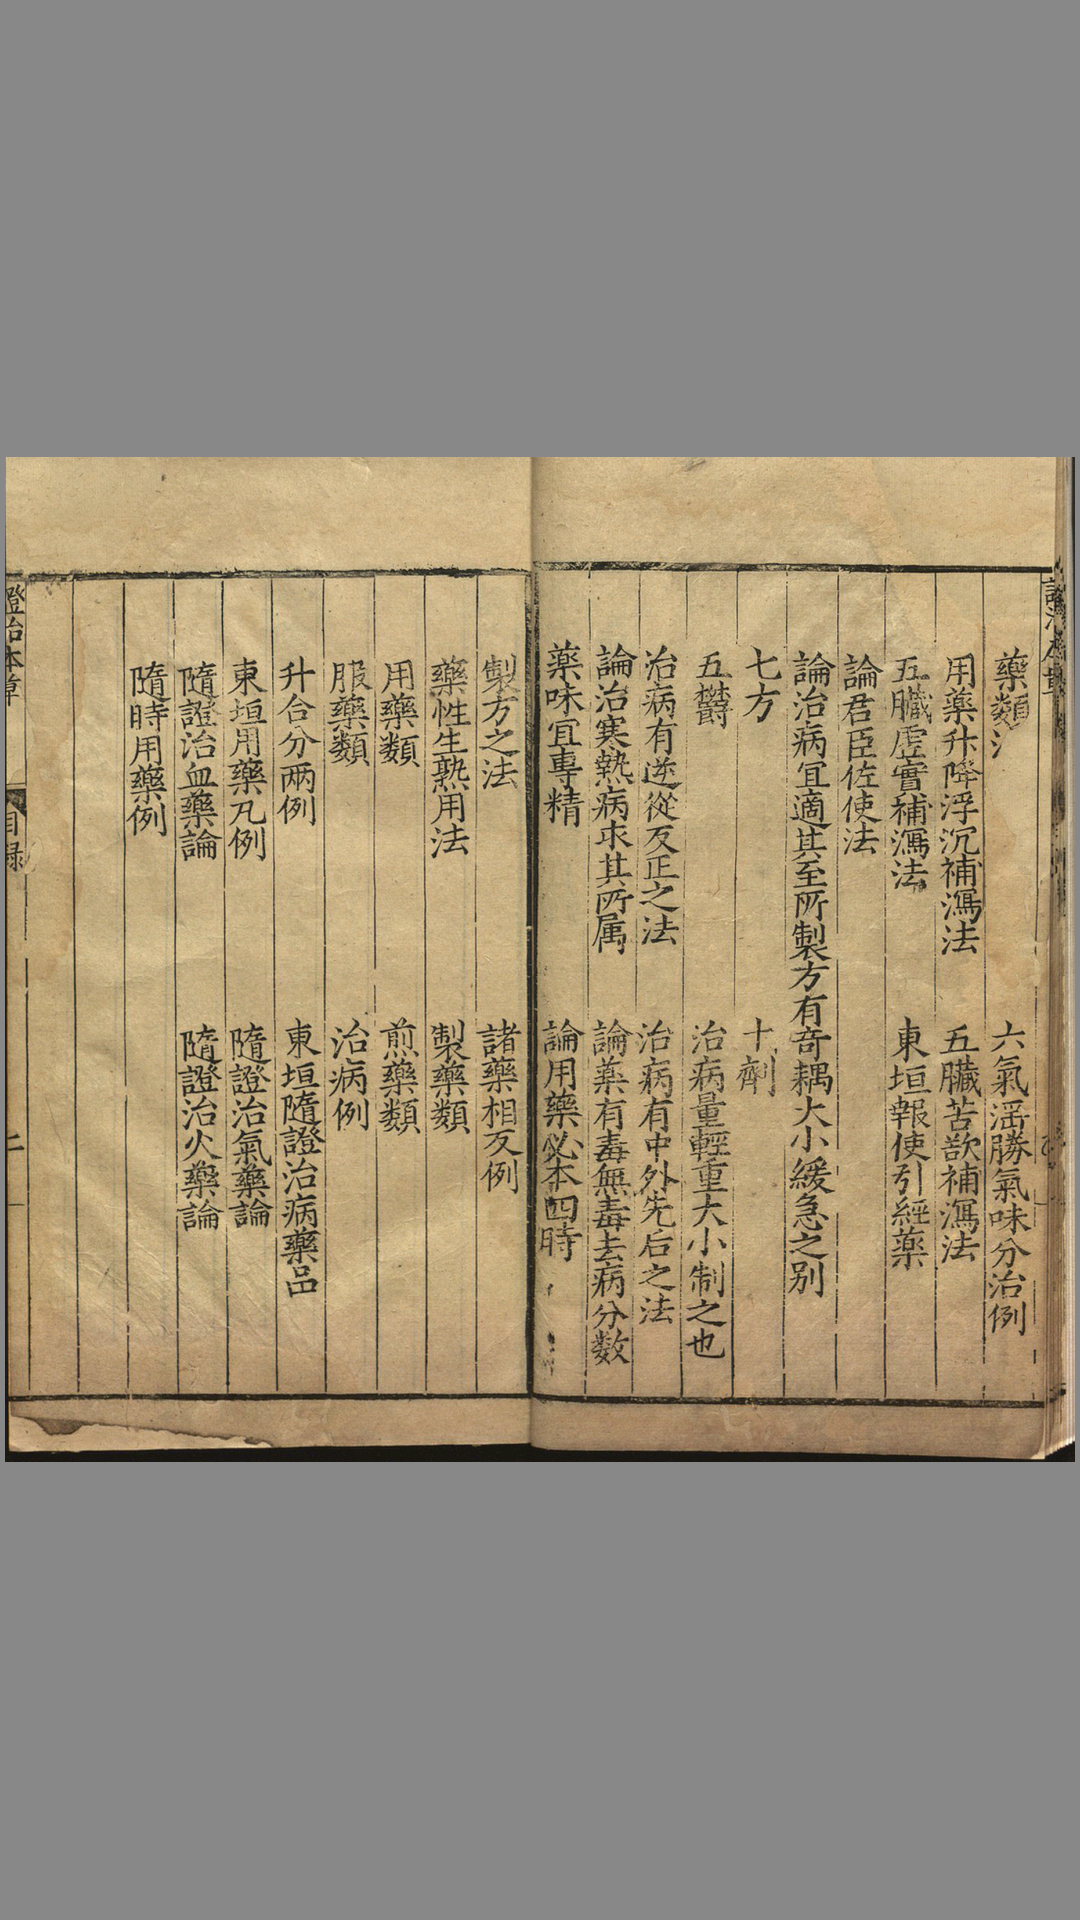 藥類法
六氣滛勝氣味分治例
用藥升降浮沉補瀉法
五臟苦欲補瀉法
五臟虛實補瀉法
東垣報使引經藥
論君臣佐使法
論治病宜適其至所製方有竒耦大小緩急之别
七方
十劑
五鬱
治病量輕重大小制之也
治病有逆從反正之法
治病有中外先后之法
論治寒熱病求其所属
論藥有毒無毒去病分数
藥味宜專精
論用藥必本四時
製方之法
諸藥相反例
藥性生熟用法
製藥類
用藥類
煎藥類
服藥類
治病例
升合分兩例
東垣隨證治病藥品
東垣用藥凡例
隨證治氣藥論
隨證治血藥論
隨證治火藥論
隨時用藥例
證治本草
目録
二